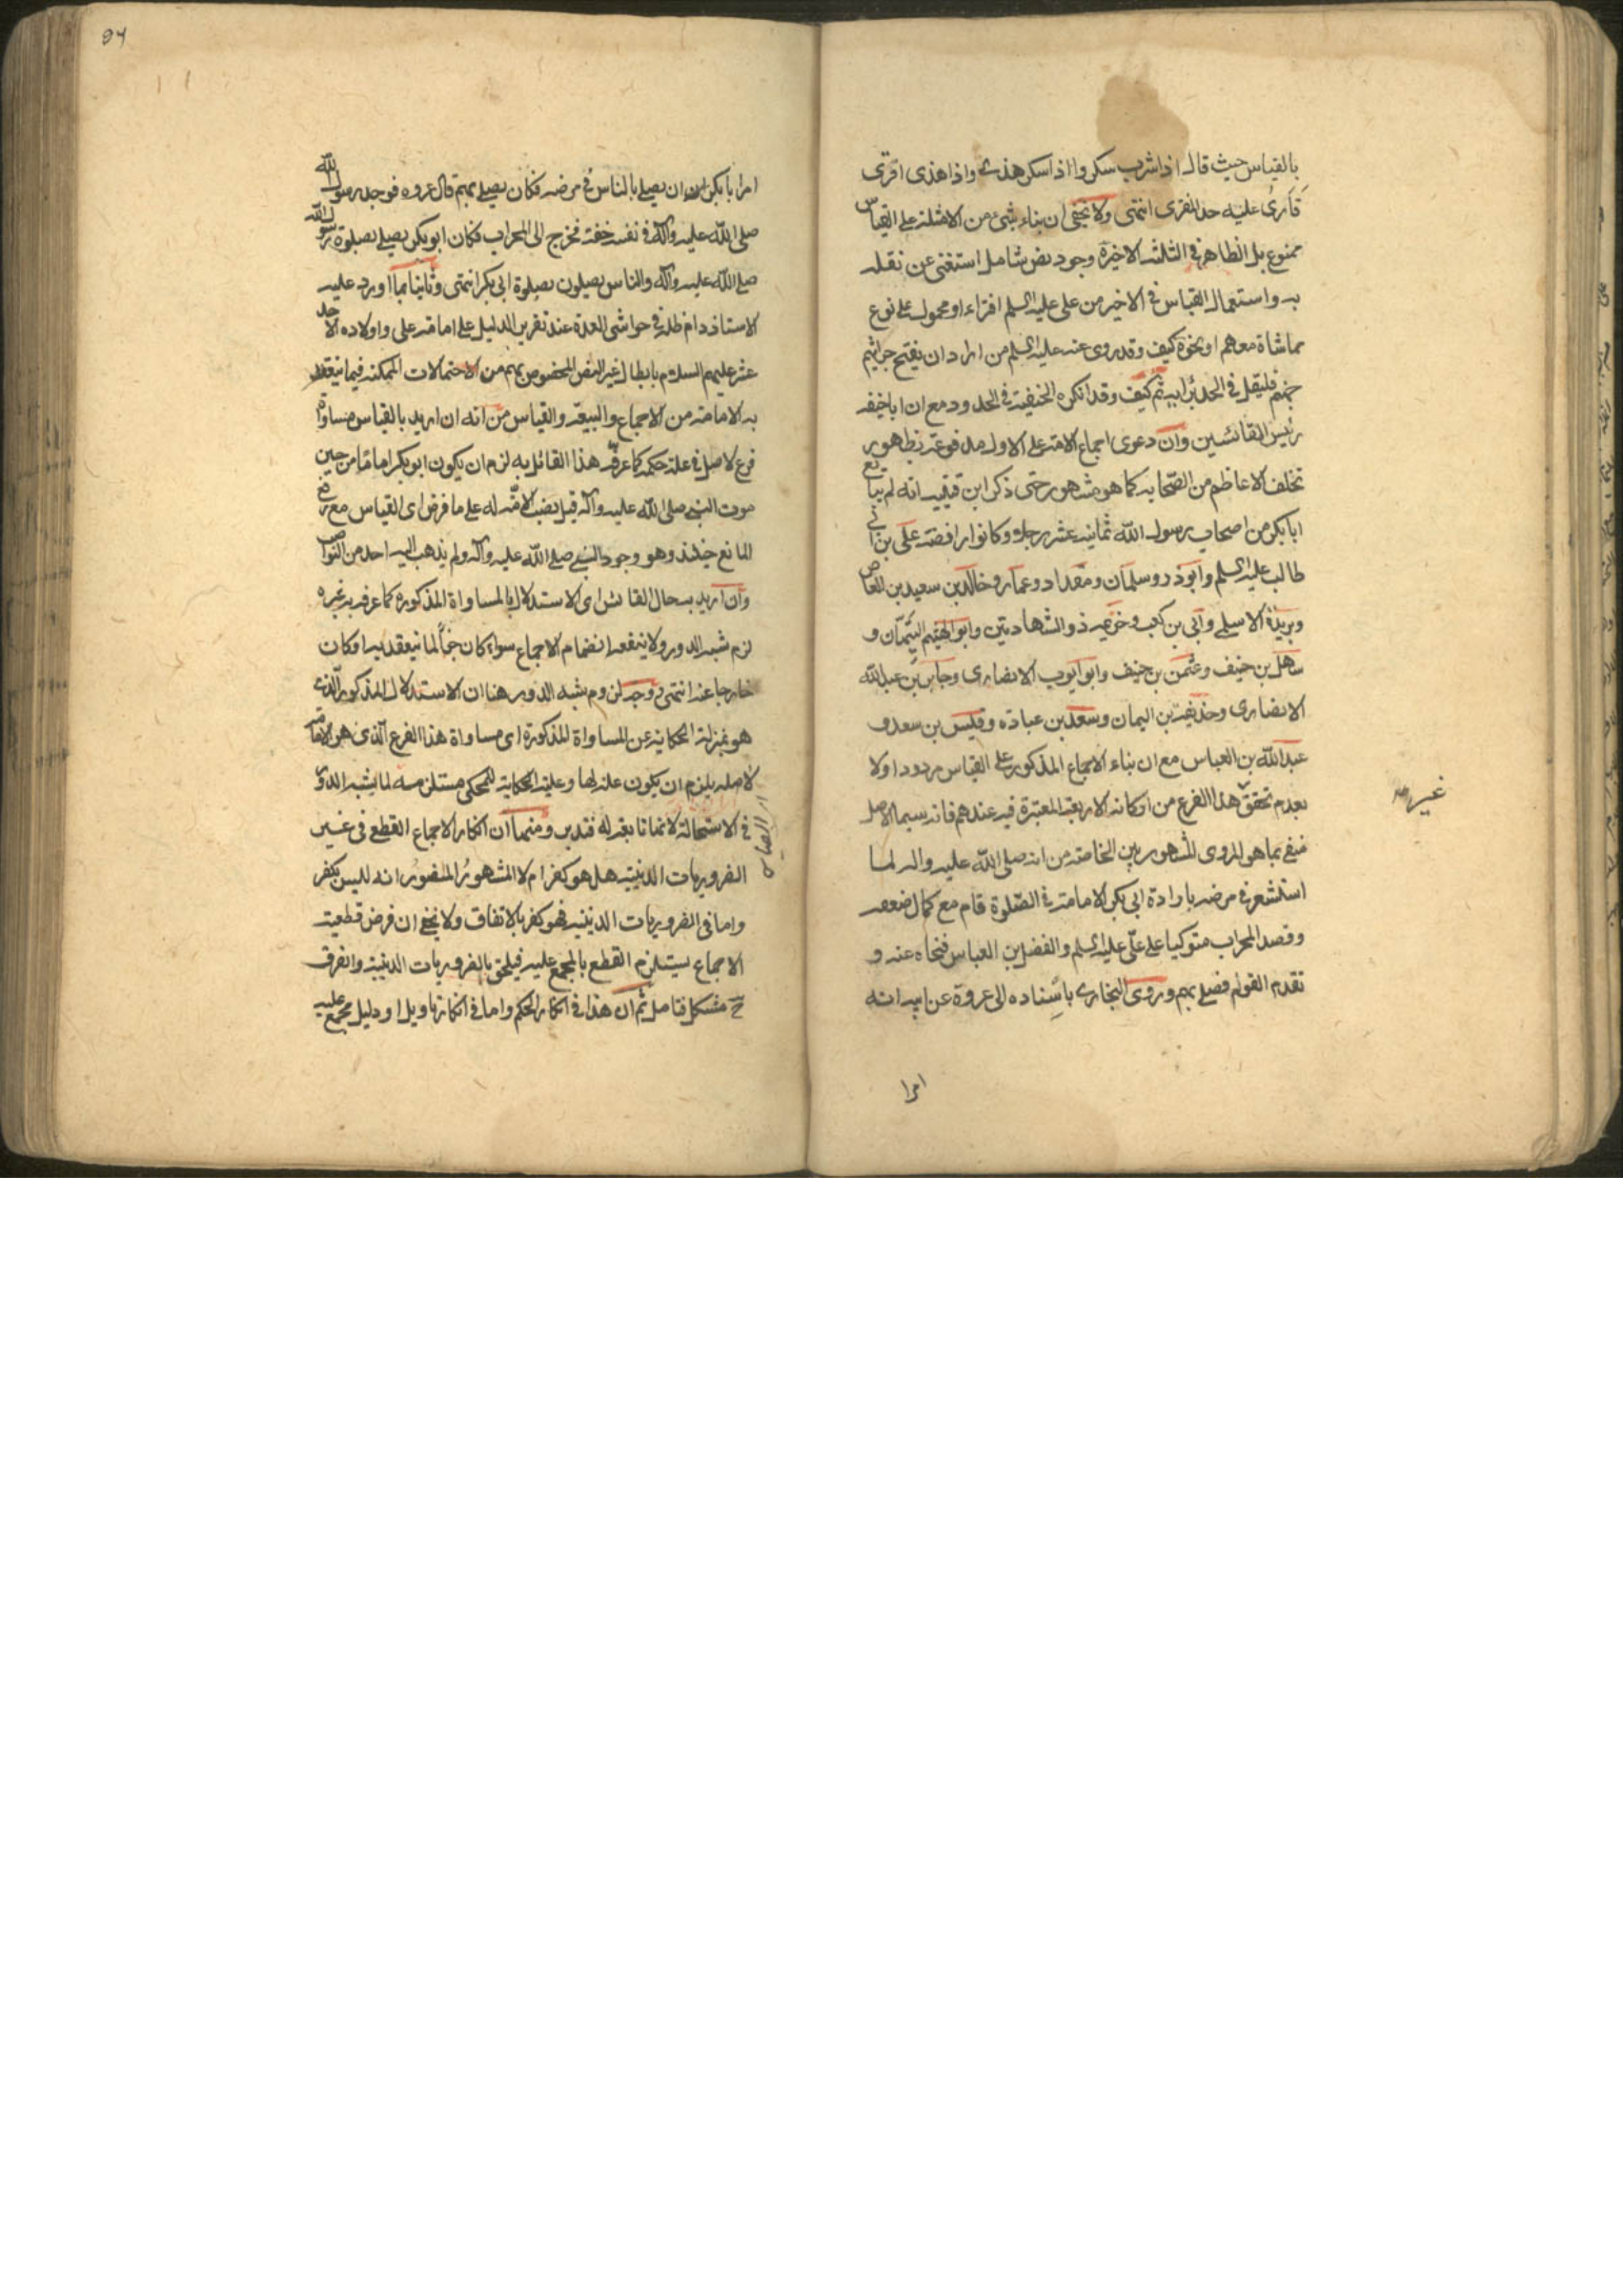 بالقياس حيث قال اذا شرب سكر واذا سكر هذى واذا هذى افترى
فارى عليه حد المفترى انتهى ولا يخفى ان بناء شئ من الامثلة على القياس
ممنوع بل الظاهر فى الثلثة الاخيرة وجود نص شامل استغنى عن نقله
به واستعمال القياس فى الاخير من على عليه السلم افتراء او محمول على نوع
مماشاة معهم او نحوه كيف وقد روى عنه عليه السلم من اراد ان يقتحم جراثيم
جهنم فليقل فى الجد برأيه ثم كيف وقد انكره الحنفية فى الحدود مع ان ابا حنيفه
رئيس القائسين وان دعوى اجماع الامة على الاول مدفوعة بظهور
تخلف الاعاظم من الصحابه كما هو مشهور حتى ذكر ابن قتيبه انه لم يبايع
ابا بكر من اصحاب رسول الله ثمانية عشر رجلا وكانوا رافضة على بن ابى
طالب عليه السلم وابوذر وسلمان ومقداد وعمار وخالد بن سعيد بن العاص
وبريدة الاسلمى وابى بن كعب وخزيمه ذو الشهادتين وابو الهيثم التيهان و
سهل بن حنيف وعثمن بن حنيف وابو ايوب الانصارى وجابر بن عبد الله
الانصارى وحذيفة بن اليمان وسعد بن عبادة وقيس بن سعد و
عبد الله بن العباس مع ان بناء الاجماع المذكور على القياس مردود اولا
بعدم تحقق هذا الفرع من اركانه الاربعة المعتبرة فيه عندهم فانه سيما الاصل
غير
منفى بما هو المروى المشهور بين الخاصة من انه صلى الله عليه واله لما
استشعر فى مرضه بارادة ابى بكر الامامة فى الصلوة قام مع كمال ضعفه
وقصد المحراب متوكيا على على عليه السلم والفضل بن العباس فنحاه عنه و
تقدم القوم فصلى بهم وروى البخارى باسناده الى عروة عن ابيه انه
امرا
امر ابا بكر ان يصلى بالناس فى مرضه فكان يصلى بهم قال عروه فوجد رسول الله
صلى الله عليه وآله فى نفسه خفة فخرج الى المحراب فكان ابو بكر يصلى بصلوة رسول الله
صلى الله عليه وآله والناس يصلون بصلوة ابى بكر انتهى وثانيا بما اورد عليه
الاستاذ دام ظله فى حواشى العدة عند تقرير الدليل على امامة على واولاده الاحد
عشر عليهم السلام بابطال غير النص المخصوص بهم من الاحتمالات الممكنه فيما ينعقد
به الامامة من الاجماع والبيعة والقياس من انه ان اريد بالقياس مساواة
فرع لاصل فى علة حكمه كما عرفه هذا القائل به لزم ان يكون ابو بكر اماما من حين
موت النبى صلى الله عليه وآله قبل نصب الامة له على ما فرض اى القياس مع رفع
المانع حينئذ وهو وجود النبى صلى الله عليه وآله ولم يذهب اليه احد من النواصب
وان اريد به حال القائس اى الاستدلال بالمساواة المذكوره كما عرفه به غيره
لزم شبه الدور ولا ينفعه انضمام الاجماع سواء كان جزأ لما ينعقد به او كان
خارجا عنه انتهى ووجه لزوم شبه الدور هنا ان الاستدلال المذكور الذى
هو بمنزلة الحكاية عن المساواة المذكورة اى مساواة هذا الفرع الذى هو الامامة
لاصله يلزم ان يكون علة لها وعلية الحكاية للمحكى مستلزمه لما يشبه الدور
فى الاستحالة لانها تابعة له فتدبر ومنها ان انكار الاجماع القطع فى غير
الضروريات الدينية هل هو كفر ام لا المشهور المنصور انه ليس بكفر
واما فى الضروريات الدينيه فهو كفر بالاتفاق ولا يخفى ان فرض قطعية
الاجماع يستلزم القطع بالمجمع عليه فيلحق بالضروريات الدينية والفرق
ح مشكل فتامل ثم ان هذا فى انكار الحكم واما فى انكار تاويل او دليل مجمع عليه